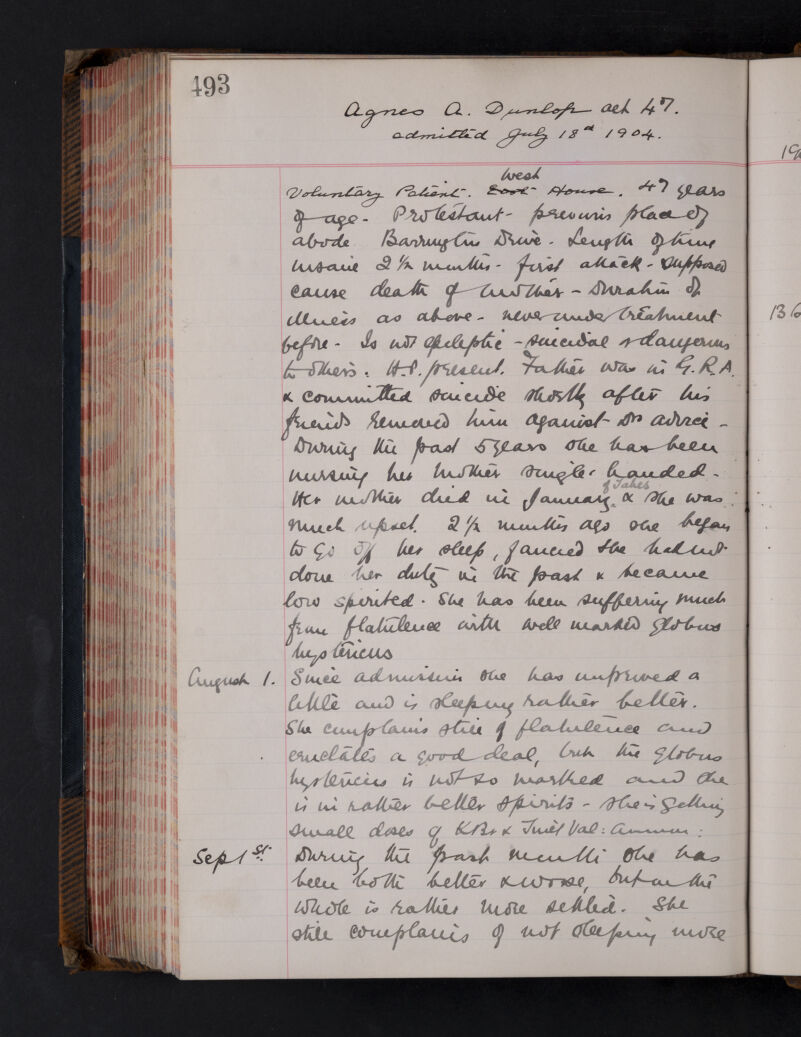 493
Agnes A. Dunlop aet 47.
admitted July 18th 1904.
West
Voluntary Patient. East House. 47 years
of age - Protestant - previous place of
abode Barrington Drive - Length of time
insane 2½ months - first attack - supposed
cause death of mother - Duration of
illness as above - never under treatment
before - Is not epileptic - suicidal or dangerous
to others. H.P. present. Father was in G.R.A.
& committed suicide shortly after his
friends removed him against Drs advice -
During the past 5 years she has been
nursing her mother single-handed -
of Tabes
Her mother died in January & she was
much upset. 2½ months ago she began
to go off her sleep, fancied she had not
done her duty in the past & became
low spirited. She has been suffering much
from flatulence with well marked globus
hystericus
August 1. Since admission she has improved a
little and is sleeping rather better.
She complains still of flatulence and
eructates a good deal, but the globus
hystericus is not so marked and she
is in rather better spirits - she is getting
small doses of KBr & Tinct Val: Ammon:
Sept 1st. During the past month she has
been both better & worse, but on the
whole is rather more settled. She
still complains of not sleeping more
19
136